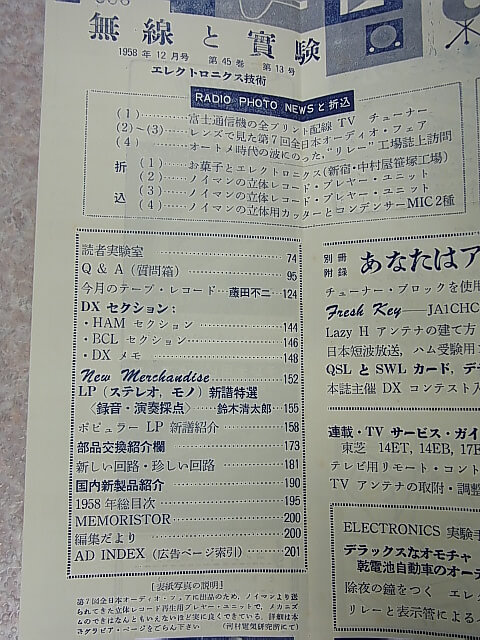 無線と實驗
1958年12月号 第45巻 第13号
エレクトロニクス技術
RADIO PHOTO NEWSと折込
(1)……富士通信機の全プリント配線 TV チューナー
(2)～(3)……レンズで見た第7回全日本オーディオ・フェア
(4)……オートメ時代の波にのった,"リレー"工場誌上訪問
折込
(1)……お菓子とエレクトロニクス(新宿・中村屋笹塚工場)
(2)……ノイマンの立体レコード・プレヤー・ユニット
(3)……ノイマンの立体レコード・プレヤー・ユニット
(4)……ノイマンの立体用カッターとコンデンサーMIC 2種
読者実験室……74
Q & A (質問箱)……95
今月のテープ・レコード…藤田不二…124
DX セクション:
・HAM セクション……144
・BCL セクション……146
・DX メモ……148
New Merchandise……152
LP (ステレオ, モノ) 新譜特選
〈録音・演奏採点〉……鈴木清太郎…155
ポピュラー LP 新譜紹介……158
部品交換紹介欄……173
新しい回路・珍しい回路……181
国内新製品紹介……190
1958 年総目次……195
MEMORISTOR……200
編集だより……200
AD INDEX (広告ページ索引)……201
〔表紙写真の説明〕
第7回全日本オーディオ・フェアに出品のため, ノイマンより送
られてきた立体レコード再生用プレヤー・ユニットで, メカニズ
ムのできはなんともいえないほど実に良くできている. 詳細は本
誌グラビア・ページをごらん下さい. (河村電気研究所にて)
別冊附録
あなたはア
チューナー・ブロックを使用
Fresh Key——JA1CHC
Lazy H アンテナの建て方
日本短波放送, ハム受験用
QSL と SWL カード, デ
本誌主催 DX コンテスト入
連載・TV サービス・ガイ
東芝 14ET, 14EB, 17E
テレビ用リモート・コント
TV アンテナの取附・調整
ELECTRONICS 実験手
デラックスなオモチャ
乾電池自動車のオーデ
除夜の鐘をつく エレク
リレーと表示管による